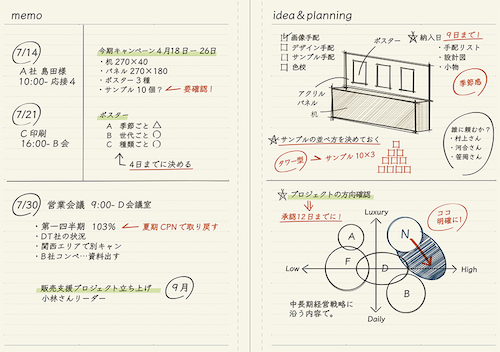 memo
7/14
A社 島田様
10:00- 応接4
今期キャンペーン4月18日-26日
・机 270×40
・パネル 270×180
・ポスター3種
・サンプル10個？ ← 要確認！
7/21
C印刷
16:00- B会
ポスター
A 季節ごと △
B 世代ごと ○
C 種類ごと ○
4日までに決める
7/30 営業会議 9:00- D会議室
・第一四半期 103% ← 夏期CPNで取り戻す
・DT社の状況
・関西エリアで別キャン
・B社コンペ…資料出す
販売支援プロジェクト立ち上げ
小林さんリーダー
9月
idea＆planning
画像手配
デザイン手配
サンプル手配
色校
ポスター
アクリル
パネル
机
納入日 9日まで！
・手配リスト
・設計図
・小物
季節感
誰に頼むか？
・村上さん
・河合さん
・笹岡さん
サンプルの並べ方を決めておく
タワー型 → サンプル10×3
プロジェクトの方向確認
承認12日までに！
Luxury
ココ
明確に！
A
N
F
D
B
Low
High
Daily
中長期経営戦略に
沿う内容で。